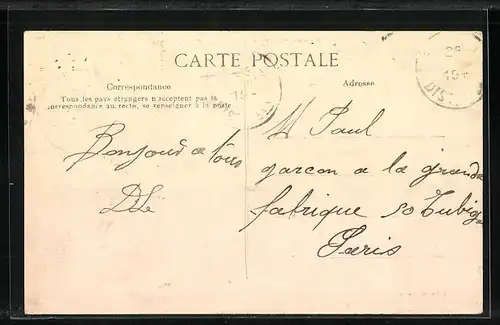 CARTE POSTALE
Correspondance
Tous les pays étrangers n'acceptent pas la
correspondance au recto, se renseigner à la poste
Adresse
Bonjour a tous
M Paul
garcon a la grande
fabrique 50 Turbigo
Paris